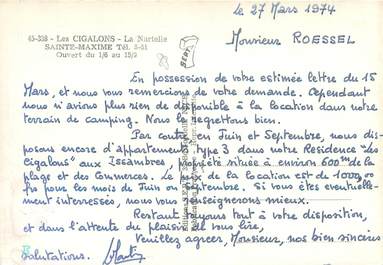 le 27 Mars 1974
65-338 - Les CIGALONS - La Nartelle
SAINTE-MAXIME Tél. 3-51
Ouvert du 1/6 au 15/9
Monsieur ROESSEL
En possession de votre estimée lettre du 15
Mars, et nous vous remercions de votre demande. Cependant
nous n'avions plus rien de disponible à la location dans notre
terrain de camping. Nous le regrettons bien.
Par contre en Juin et Septembre, nous dis-
posons encore d'appartements type 3 dans notre Résidence "Les
Cigalons" aux Issambres, propriété située à environ 600m de la
plage et des Commerces. Le de la location est de 1000,00
frs pour les mois de Juin ou Septembre. Si vous êtes éventuelle-
ment intéressés, nous vous renseignerons mieux.
Restant toujours tout à votre disposition,
et dans l'attente du plaisir de vous lire,
Veuillez agréer, Monsieur, nos bien sincères
salutations.